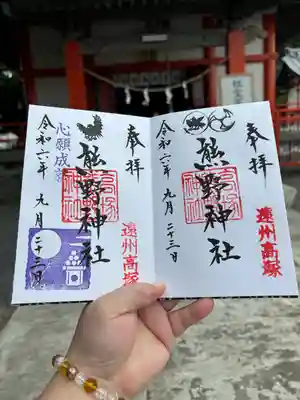 奉拝
遠州高塚
熊野神社
高塚
神社
心願成就
令和六年九月二十三日
奉拝
遠州高塚
熊野神社
高塚
神社
令和六年九月二十三日